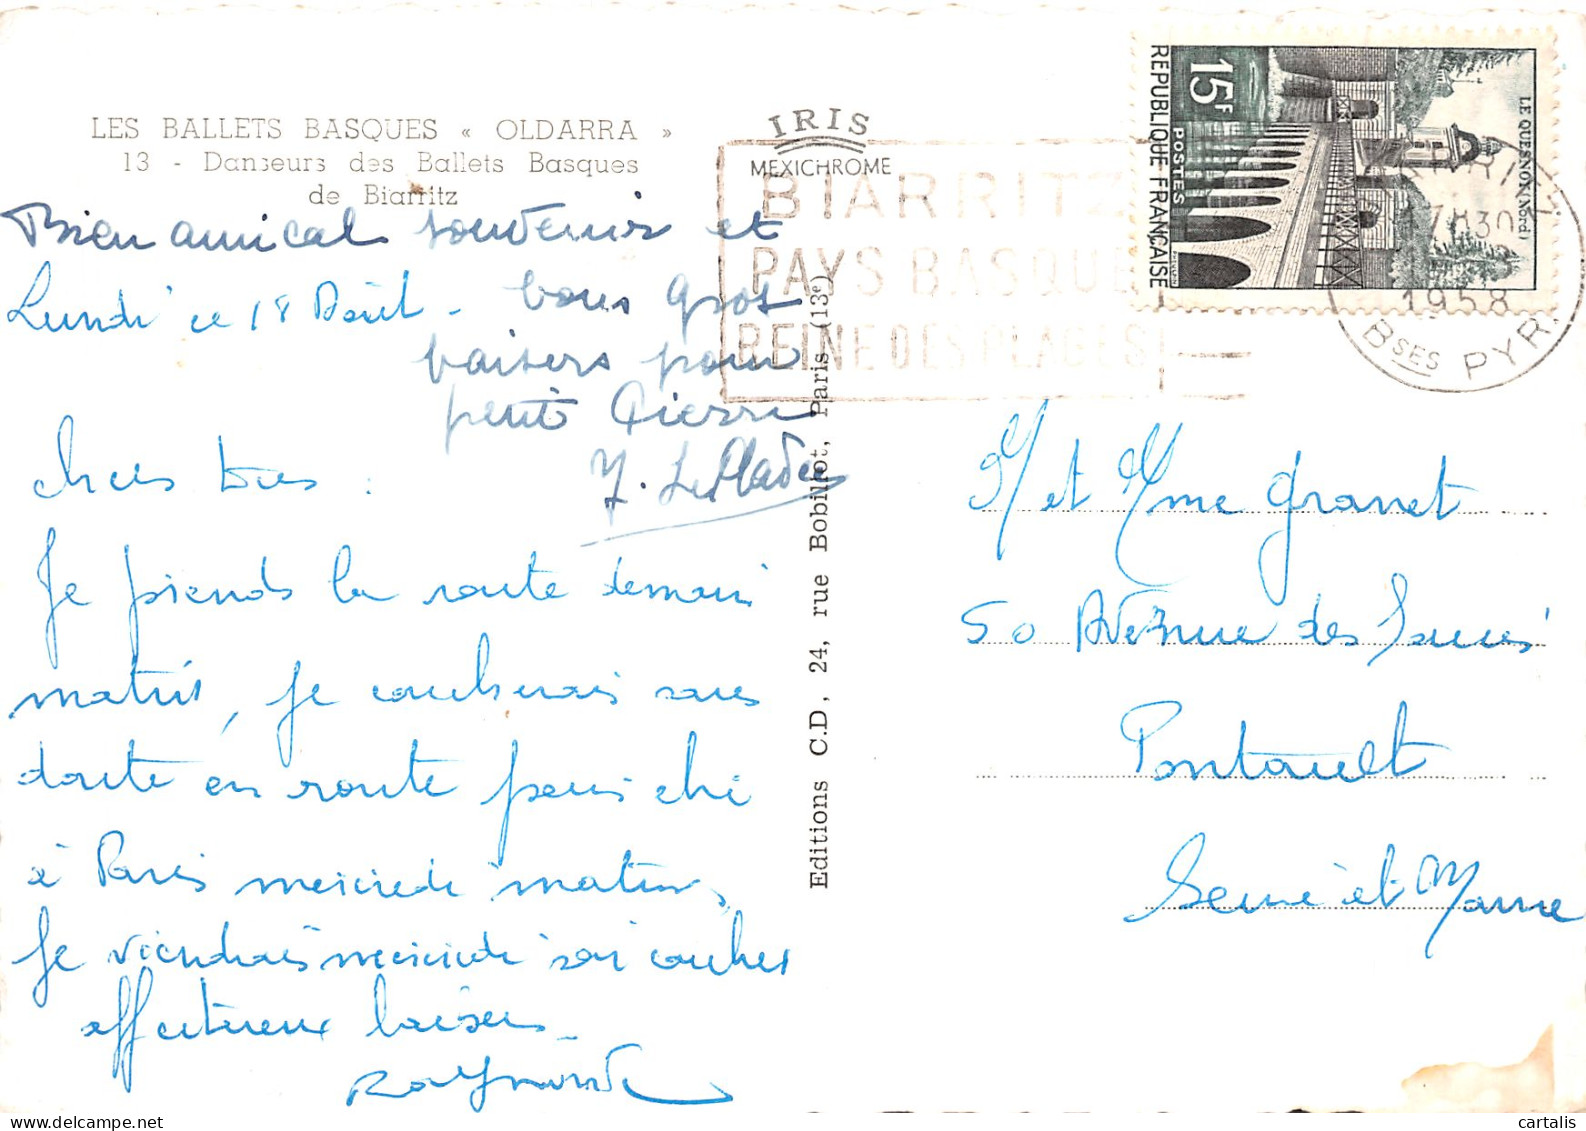 LES BALLETS BASQUES « OLDARRA »
13 - Danseurs des Ballets Basques
de Biarritz
IRIS
MEXICHROME
BIARRITZ
PAYS BASQUE
REINE DES PLAGES
REPUBLIQUE FRANÇAISE
15F
POSTES
LE QUESNOY (Nord)
17H30
1958
BSES PYR.
Bien amical souvenir et
bons gros
baisers pour
petit Pierre
Lundi ce 18 Août -
chers tous :
Je prends la route demain
matin, je coucherais sans
doute en route pour chi
à Paris mercredi matin,
Je viendrais mercredi soir coucher
affectueux baisers
Raymonde
Editions C.D., 24, rue Bobillot, Paris (13e)
M et Mme Granet
50 Avenue des
Pontault
Seine et Marne
cartalis